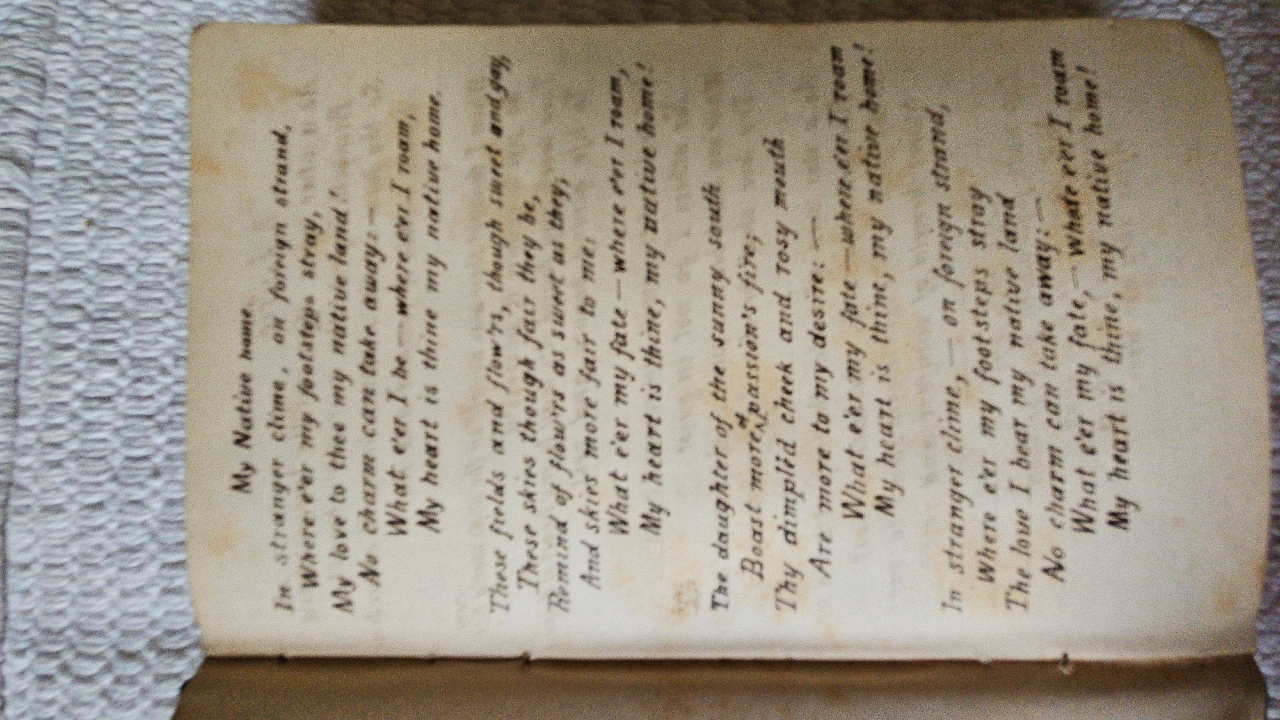 My Native home.
In stranger clime, on foreign strand,
Where e'er my footsteps stray,
My love to thee my native land!
No charm can take away:—
What e'er I be — where e'er I roam,
My heart is thine my native home.
These fields and flow'rs, though sweet and gay,
These skies though fair they be,
Remind of flow'rs as sweet as they,
And skies more fair to me:
What e'er my fate — where e'er I roam,
My heart is thine, my native home!
The daughter of the sunny south
Boast more of passion's fire;
Thy dimpled cheek and rosy mouth
Are more to my desire:—
What e'er my fate — where e'er I roam
My heart is thine, my native home!
In stranger clime, — on foreign strand,
Where e'er my footsteps stray
The love I bear my native land
No charm can take away:—
What e'er my fate, — Whate e'er I roam
My heart is thine, my native home!